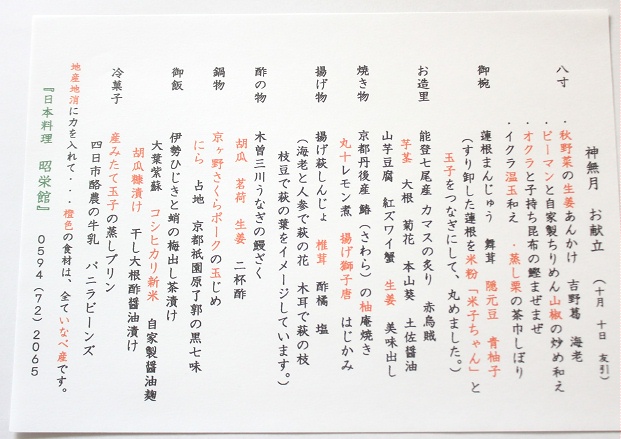 神無月　お献立　（十月　十日　友引）
八寸　・秋野菜の生姜あんかけ　吉野葛　海老
・ピーマンと自家製ちりめん山椒の炒め和え
・オクラと子持ち昆布の鰹まぜまぜ
・イクラ温玉和え　・蒸し栗の茶巾しぼり
御椀　蓮根まんじゅう　舞茸　隠元豆　青柚子
（すり卸した蓮根を米粉「米子ちゃん」と
玉子をつなぎにして、丸めました。）
お造里　能登七尾産　カマスの炙り　赤烏賊
芋茎　大根　菊花　本山葵　土佐醤油
山芋豆腐　紅ズワイ蟹　生姜　美味出し
焼き物　京都丹後産　鰆（さわら）の柚庵焼き
丸十レモン煮　揚げ獅子唐　はじかみ
揚げ物　揚げ萩しんじょ　椎茸　酢橘　塩
（海老と人参で萩の花　木耳で萩の枝
枝豆で萩の葉をイメージしています。）
酢の物　木曽三川うなぎの鰻ざく
胡瓜　茗荷　生姜　二杯酢
鍋物　京ヶ野さくらポークの玉じめ
にら　占地　京都祇園原了郭の黒七味
御飯　伊勢ひじきと蛸の梅出し茶漬け
大葉紫蘇　コシヒカリ新米　自家製醤油麹
胡瓜糠漬け　干し大根酢醤油漬け
冷菓子　産みたて玉子の蒸しプリン
四日市酪農の牛乳　バニラビーンズ
地産地消に力を入れて・・・橙色の食材は、全ていなべ産です。
『日本料理　昭栄館』　０５９４（７２）２０６５